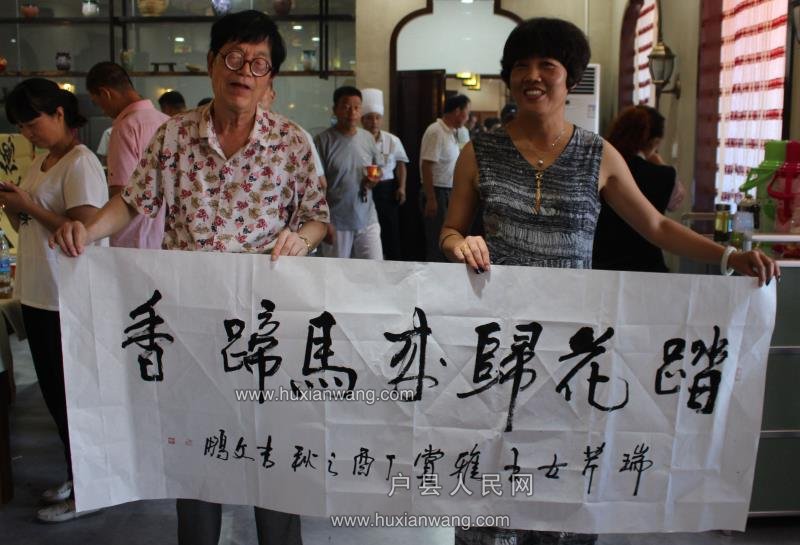 踏花歸来馬蹄香
瑞芹女士雅賞丁酉之秋吉文鵬
www.huxianwang.com
户县人民网
www.huxianwang.com